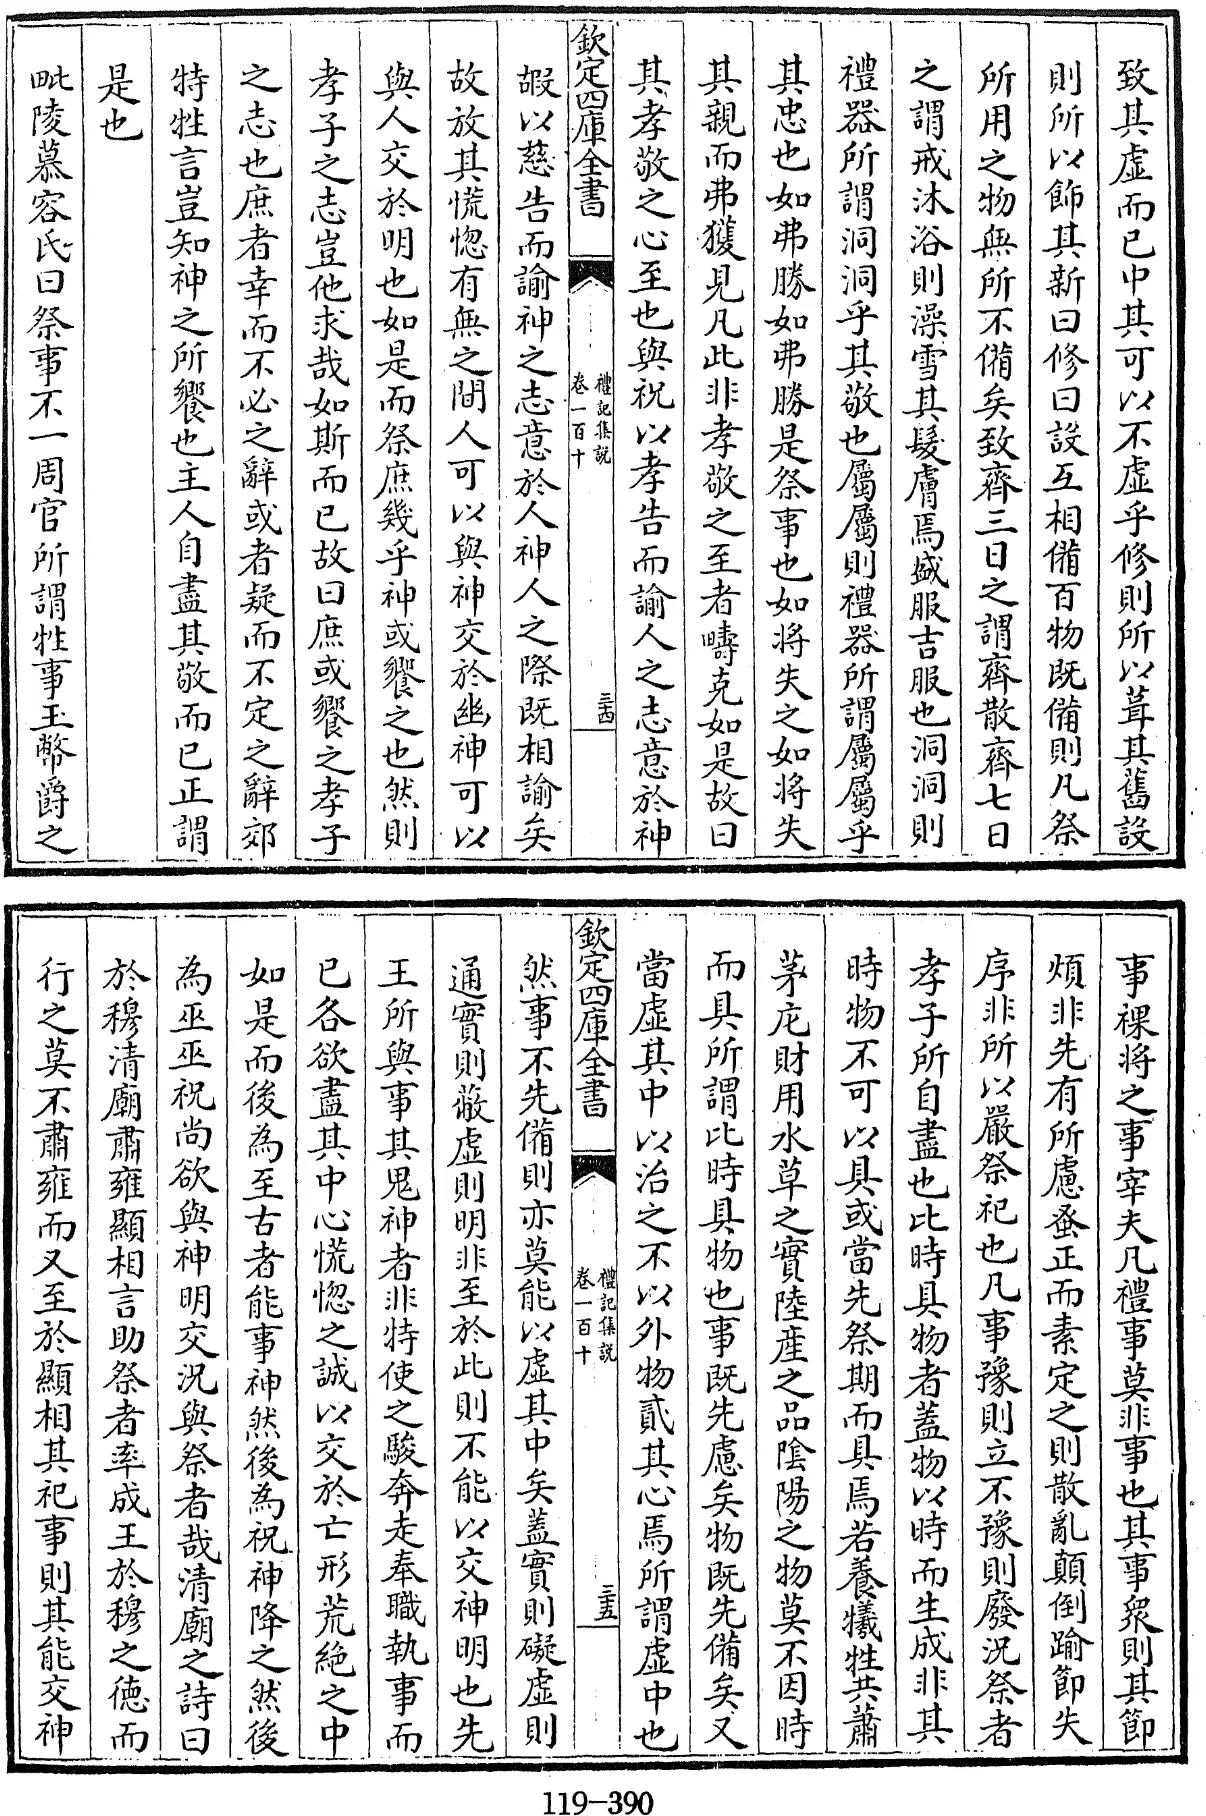 致其虛而已中其可以不虛乎修則所以葺其舊設
則所以飾其新曰修曰設互相備百物既備則凡祭
所用之物無所不備矣致齊三日之謂齊散齊七日
之謂戒沐浴則澡雪其髮膚焉盛服吉服也洞洞則
禮器所謂洞洞乎其敬也屬屬則禮器所謂屬屬乎
其忠也如弗勝如弗勝是祭事也如將失之如將失
其親而弗獲見凡此非孝敬之至者疇克如是故曰
其孝敬之心至也與祝以孝告而諭人之志意於神
欽定四庫全書
禮記集説
卷一百十
三四
嘏以慈告而諭神之志意於人神人之際既相諭矣
故放其慌惚有無之間人可以與神交於幽神可以
與人交於明也如是而祭庶幾乎神或饗之也然則
孝子之志豈他求哉如斯而已故曰庶或饗之孝子
之志也庶者幸而不必之辭或者疑而不定之辭郊
特牲言豈知神之所饗也主人自盡其敬而已正謂
是也
毗陵慕容氏曰祭事不一周官所謂牲事玉幣爵之
事祼將之事宰夫凡禮事莫非事也其事衆則其節
煩非先有所慮蚤正而素定之則散亂顛倒踰節失
序非所以嚴祭祀也凡事豫則立不豫則廢況祭者
孝子所自盡也比時具物者蓋物以時而生成非其
時物不可以具或當先祭期而具焉若養犧牲共蕭
茅庀財用水草之實陸產之品陰陽之物莫不因時
而具所謂比時具物也事既先慮矣物既先備矣又
當虛其中以治之不以外物貳其心焉所謂虛中也
欽定四庫全書
禮記集説
卷一百十
三五
然事不先備則亦莫能以虛其中矣蓋實則礙虛則
通實則蔽虛則明非至於此則不能以交神明也先
王所與事其鬼神者非特使之駿奔走奉職執事而
已各欲盡其中心慌惚之誠以交於亡形荒絶之中
如是而後為至古者能事神然後為祝神降之然後
為巫巫祝尚欲與神明交況與祭者哉清廟之詩曰
於穆清廟肅雍顯相言助祭者率成王於穆之德而
行之莫不肅雍而又至於顯相其祀事則其能交神
119-390